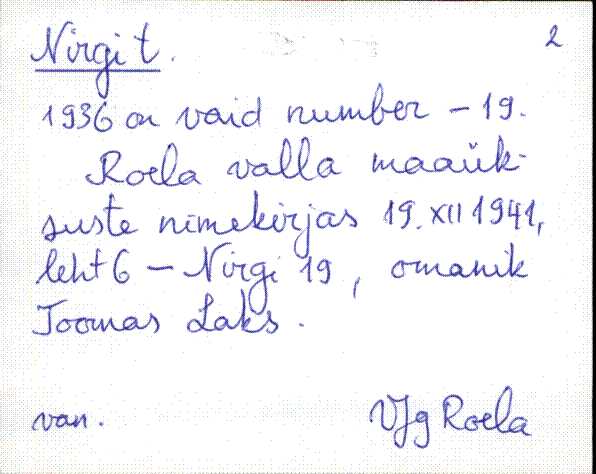 Nirgi t. 2
1936 on vaid number - 19.
Roela valla maaük-
suste nimekirjas 19. XII 1941,
leht 6 - Nirgi 19, omanik
Toomas Laks.
van. VJg Roela